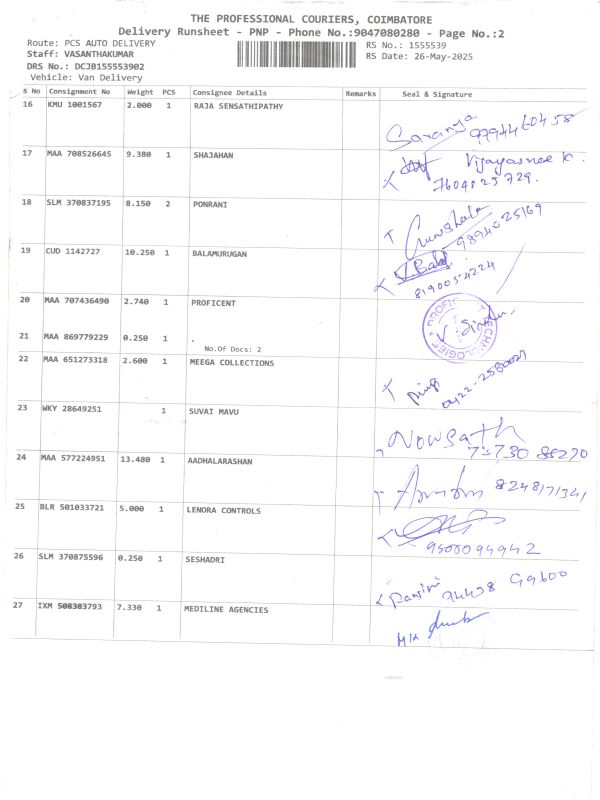 THE PROFESSIONAL COURIERS, COIMBATORE
Delivery Runsheet - PNP - Phone No.:9047080280 - Page No.:2
Route: PCS AUTO DELIVERY
Staff: VASANTHAKUMAR
DRS No.: DCJB155553902
Vehicle: Van Delivery
RS No.: 1555539
RS Date: 26-May-2025
S No Consignment No Weight PCS Consignee Details Remarks Seal & Signature
16 KMU 1001567 2.000 1 RAJA SENSATHIPATHY
Saranya 9794460458
17 MAA 708526645 9.380 1 SHAJAHAN
Vijayasree K.
7604825729.
18 SLM 370837195 8.150 2 PONRANI
9894025169
19 CUD 1142727 10.250 1 BALAMURUGAN
8190054224
20 MAA 707436490 2.740 1 PROFICENT
21 MAA 869779229 0.250 1 .
No.Of Docs: 2
22 MAA 651273318 2.600 1 MEEGA COLLECTIONS
0422-2580027
23 WKY 28649251 1 SUVAI MAVU
Nowsath
73730 88290
24 MAA 577224951 13.480 1 AADHALARASHAN
8248171341
25 BLR 501033721 5.000 1 LENORA CONTROLS
9500094942
26 SLM 370875596 0.250 1 SESHADRI
94438 99600
27 IXM 508383793 7.330 1 MEDILINE AGENCIES